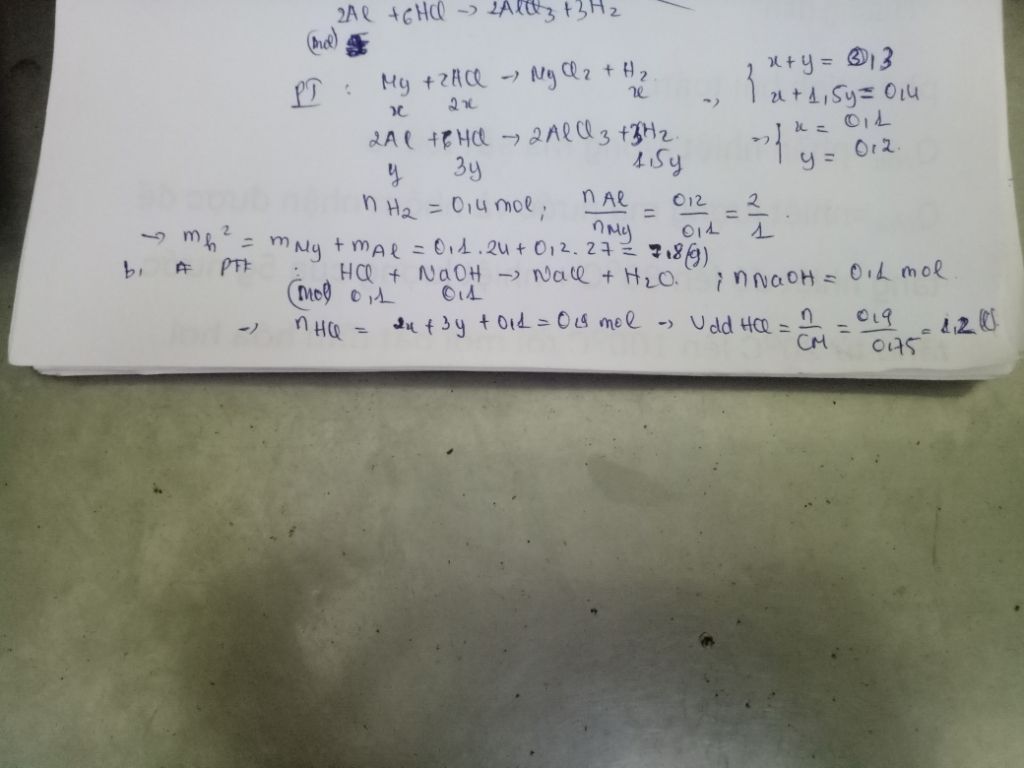 2Al + 6HCl → 2AlCl3 + 3H2
(mol)
PT : Mg + 2HCl → MgCl2 + H2. → { x + y = 0,3
x 2x x x + 1,5y = 0,4
2Al + 6HCl → 2AlCl3 + 3H2. => { x = 0,1
y 3y 1,5y y = 0,2.
n H2 = 0,4 mol ; nAl/nMg = 0,2/0,1 = 2/1
→ mh2 = mMg + mAl = 0,1.24 + 0,2.27 = 7,8(g)
b. PTH : HCl + NaOH → NaCl + H2O. ; nNaOH = 0,1 mol.
(mol) 0,1 0,1
→ nHCl = 2x + 3y + 0,1 = 0,9 mol → Vdd HCl = n/CM = 0,9/0,75 = 1,2 (l)